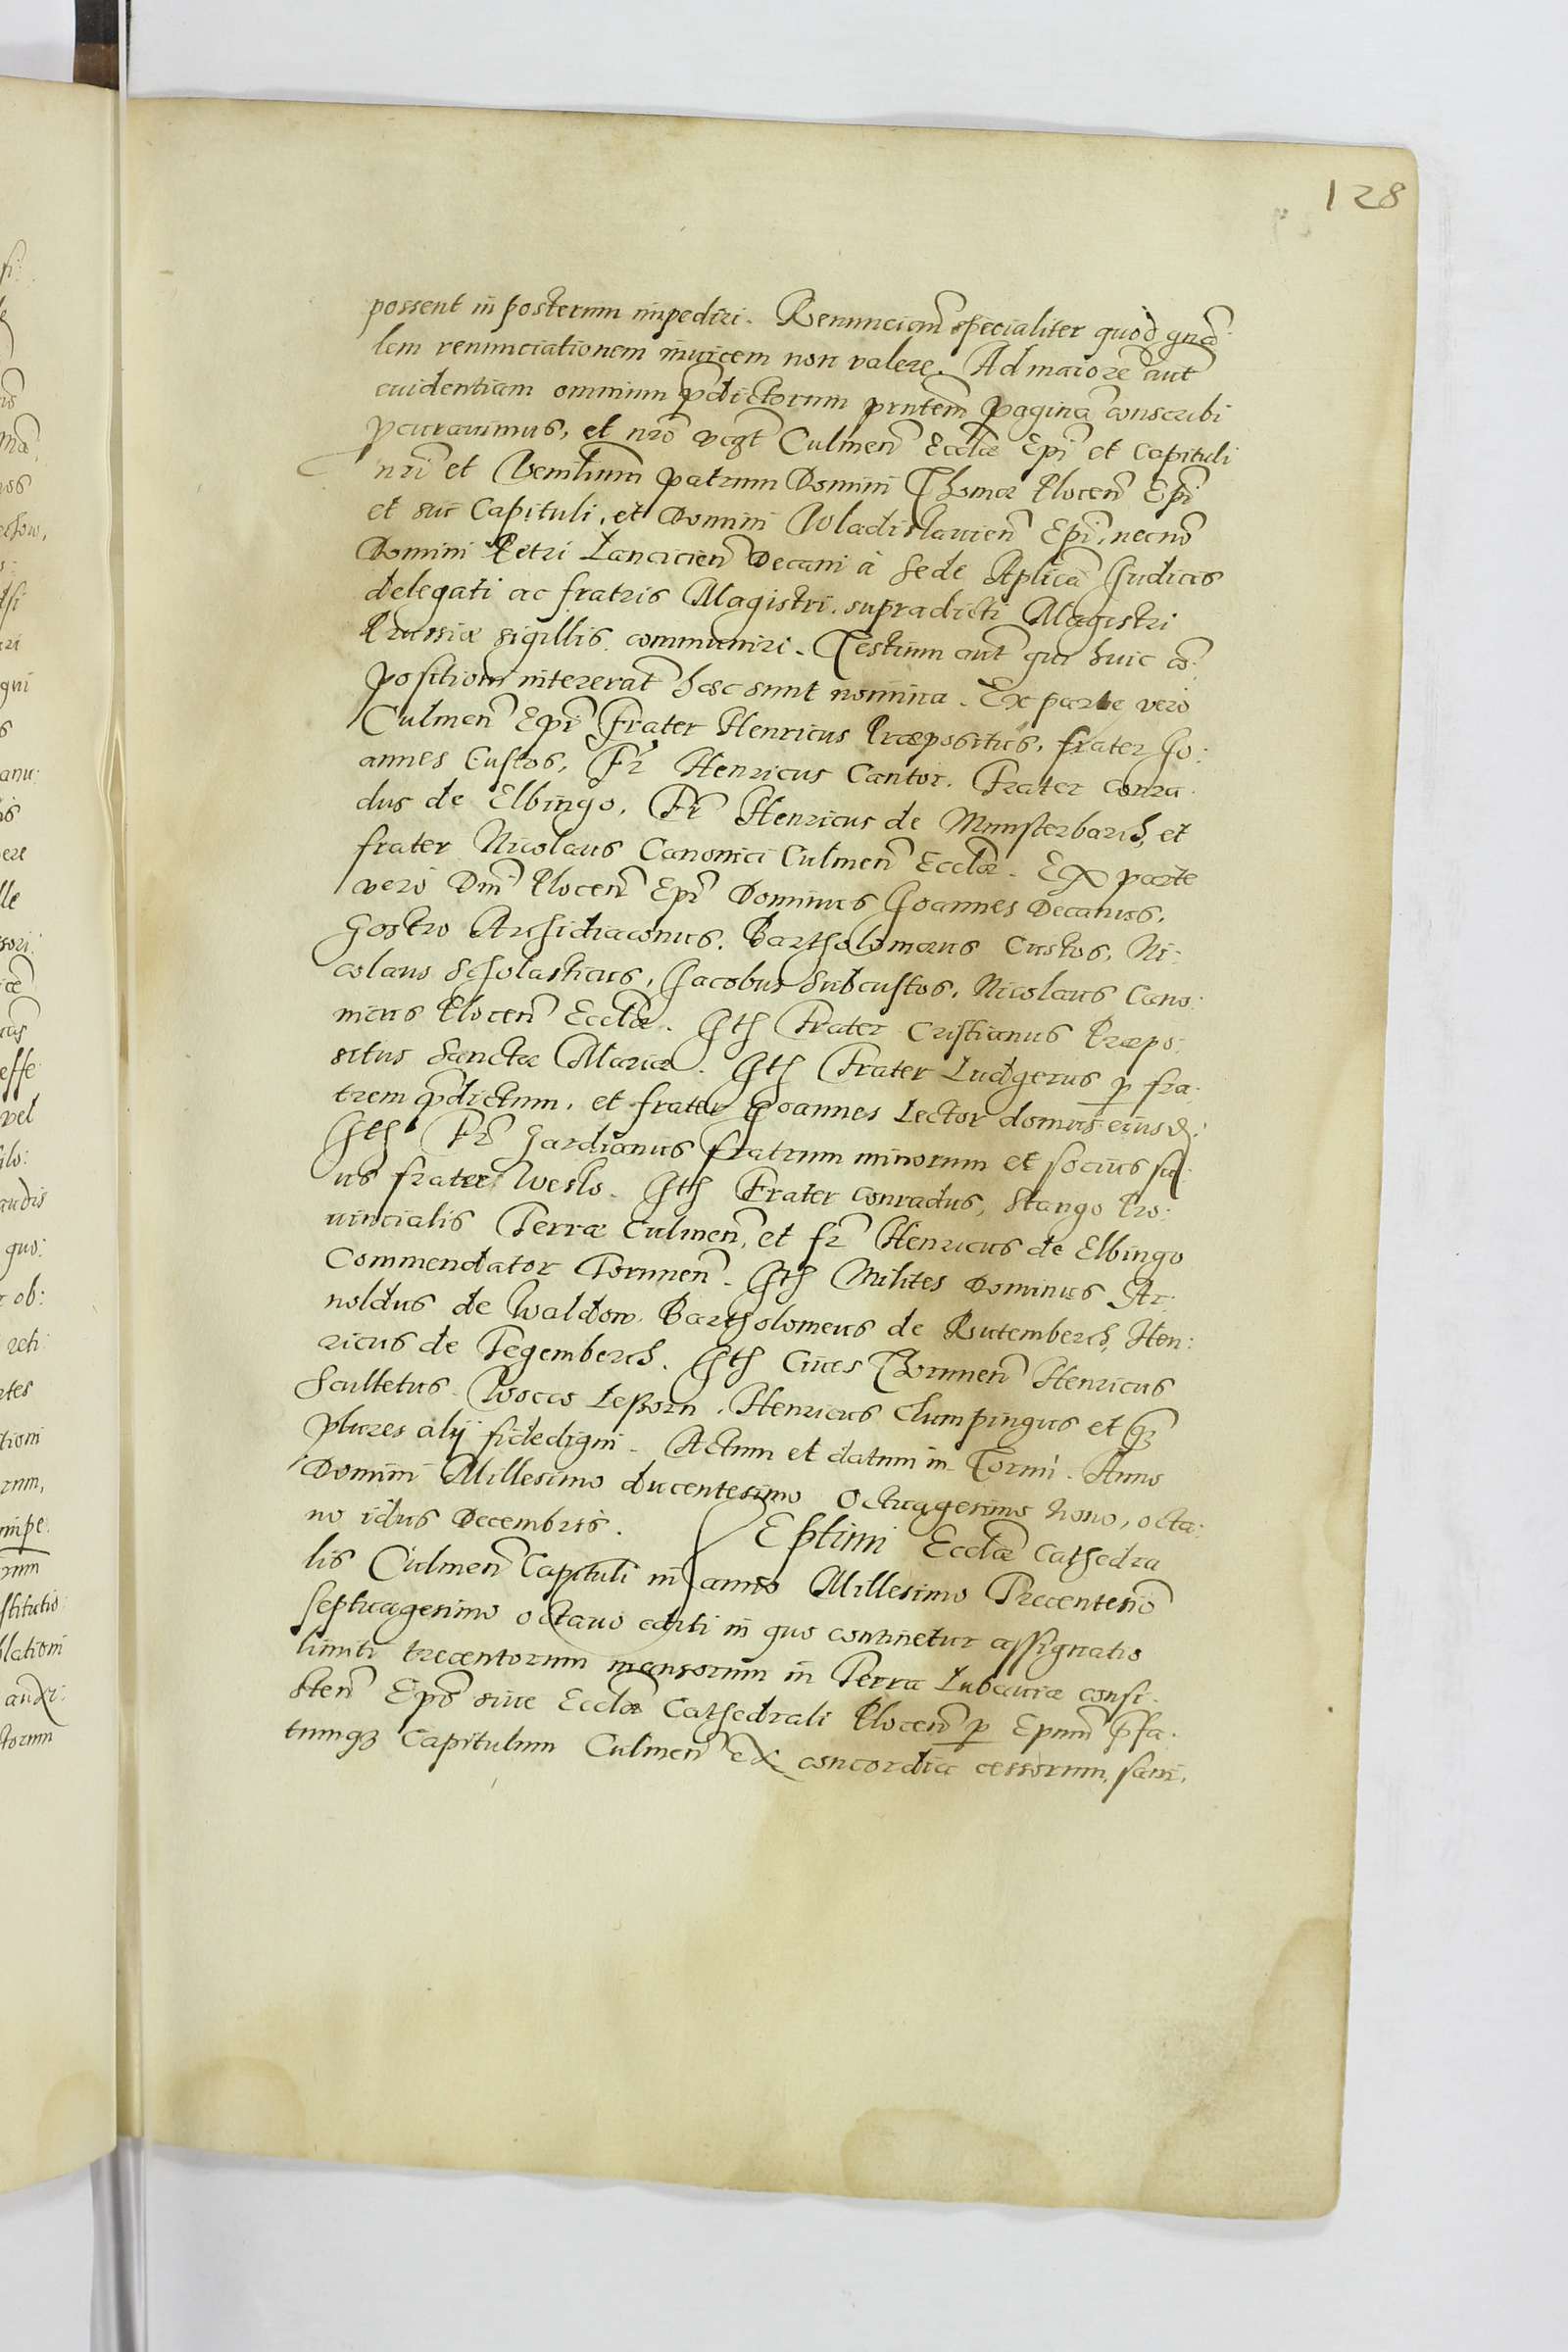 128
possent in posterum impediri. Renunciam̃ specialiter quòd gnã:
lem renunciationem inuicem non valere. Ad maiorẽ aut̃
euidentiam omnium pdictorum pntem̃ paginã conscribi
pcurauimus, et nrõ Culmeñ Eccłæ Epĩ et Capituli
nrĩ et Venłium patrum Domini Thomæ Plocen̄ Epĩ
et sui Capituli, et Domini Wladislauien̄ Epĩ, necnõ
Domini Petri Lancicien̄ Decani à Sede Aplicã Judicis
delegati ac fratris Magistri, supradicti Magistri
Prussiæ sigillis communiri. Testium aut̃ qui huic cõ:
positioni intererãt hæc sunt nomina. Ex parte verò
Culmen̄ Epĩ Frater Henricus Præpositus, frater Jo:
annes Custos, Fr̃ Henricus Cantor. Frater Conra:
dus de Elbingo, Fr̃ Henricus de Munsterbarch, et
frater Nicolaus Canonici Culmen̄ Eccłæ. Ex parte
verò Dnĩ Plocen̄ Epĩ Dominus Joannes Decanus,
Gostko Archidiaconus, Bartholomæus Custos, Ni:
colaus Scholasticus, Jacobus Subcustos, Nicolaus Cano:
nicus Plocen̄ Eccłæ. Ith Frater Cristianus Præpo:
situs Sanctæ Mariæ. Ith Frater Ludgerus p fra:
trem p̃dictum, et frater Joannes Lector domus eiusd:
Ith Fr̃ Gardianus fratrum minorum et socius su:
us frater Weslo. Ith Frater Conradus, Stango Pro:
uincialis Terræ Culmen̄, et fr̃ Henricus de Elbingo
Commendator Torunen̄. Ith Milites Dominus Ar:
noldus de Waldow, Bartholomeus de Rutemberch, Hen:
ricus de Tegemberch. Ith Ciues Thorunen̄ Henricus
Scultetus. Wocco Leßorn, Henricus Clumpingus et q̃
plures alÿ fidedigni. Actum et datum in Torun. Anno
Domini Millesimo ducentesimo Octuagesimo nono, octa:
no idus Decembris. Septimi Eccłæ Cathedra
lis Culmen̄ Capituli in anno Millesimo Trecentesimõ
septuagesimo octauo editi in quo continetur assignatio
limiti trecentorum mansorum in Terra Lubauiæ consi:
sten̄ Epõ siue Eccłæ Cathedrali Plocen̄ p Epum̃ p̃fa:
tumq3 Capitulum Culmen̄ ex concordia cessorum, sani.